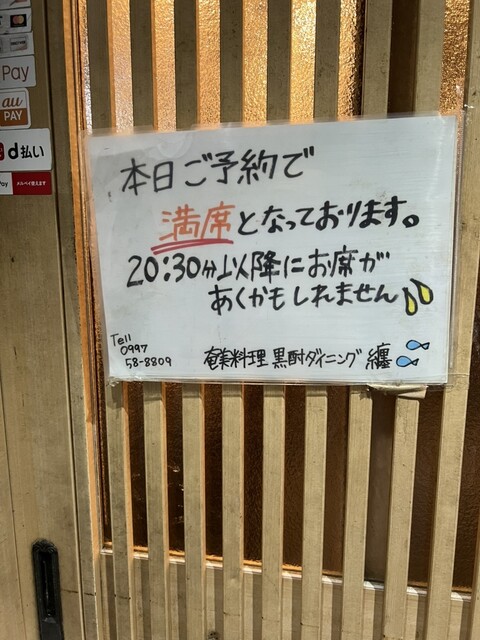 Pay
au
PAY
d払い
Pay
メルペイ使えます
本日ご予約で
満席となっております。
20:30分以降にお席が
あくかもしれません
Tell
0997
58-8809
奄美料理 黒酎ダイニング 纏